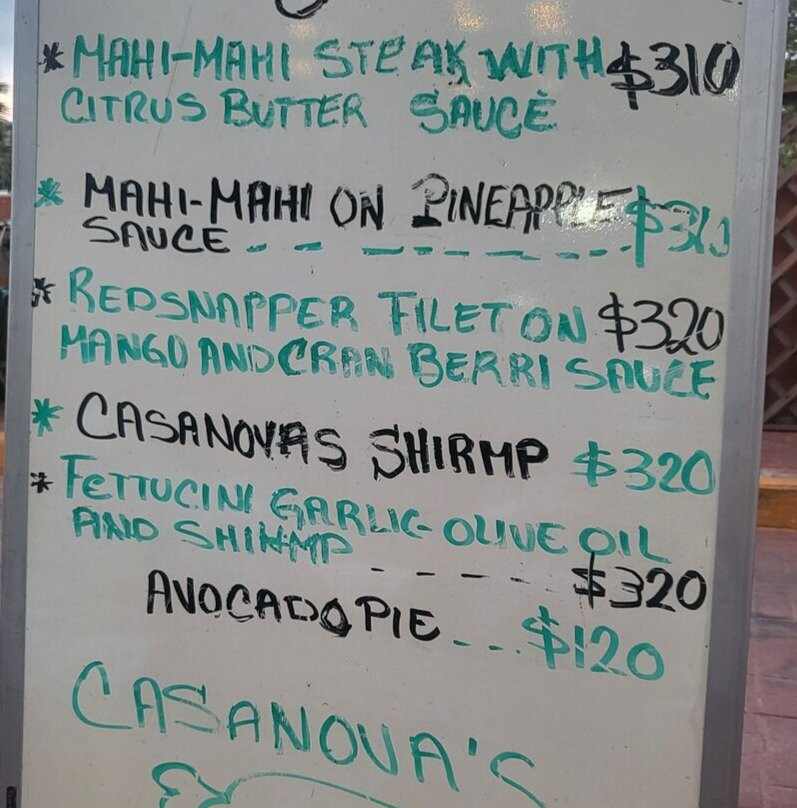 * MAHI-MAHI STEAK WITH $310
CITRUS BUTTER SAUCE
* MAHI-MAHI ON PINEAPPLE $310
SAUCE
* REDSNAPPER FILET ON $320
MANGO AND CRAN BERRI SAUCE
* CASANOVAS SHIRMP $320
* FETTUCINI GARLIC OLIVE OIL
AND SHIMMP ------ $320
AVOCADO PIE ... $120
CASANOVA'S